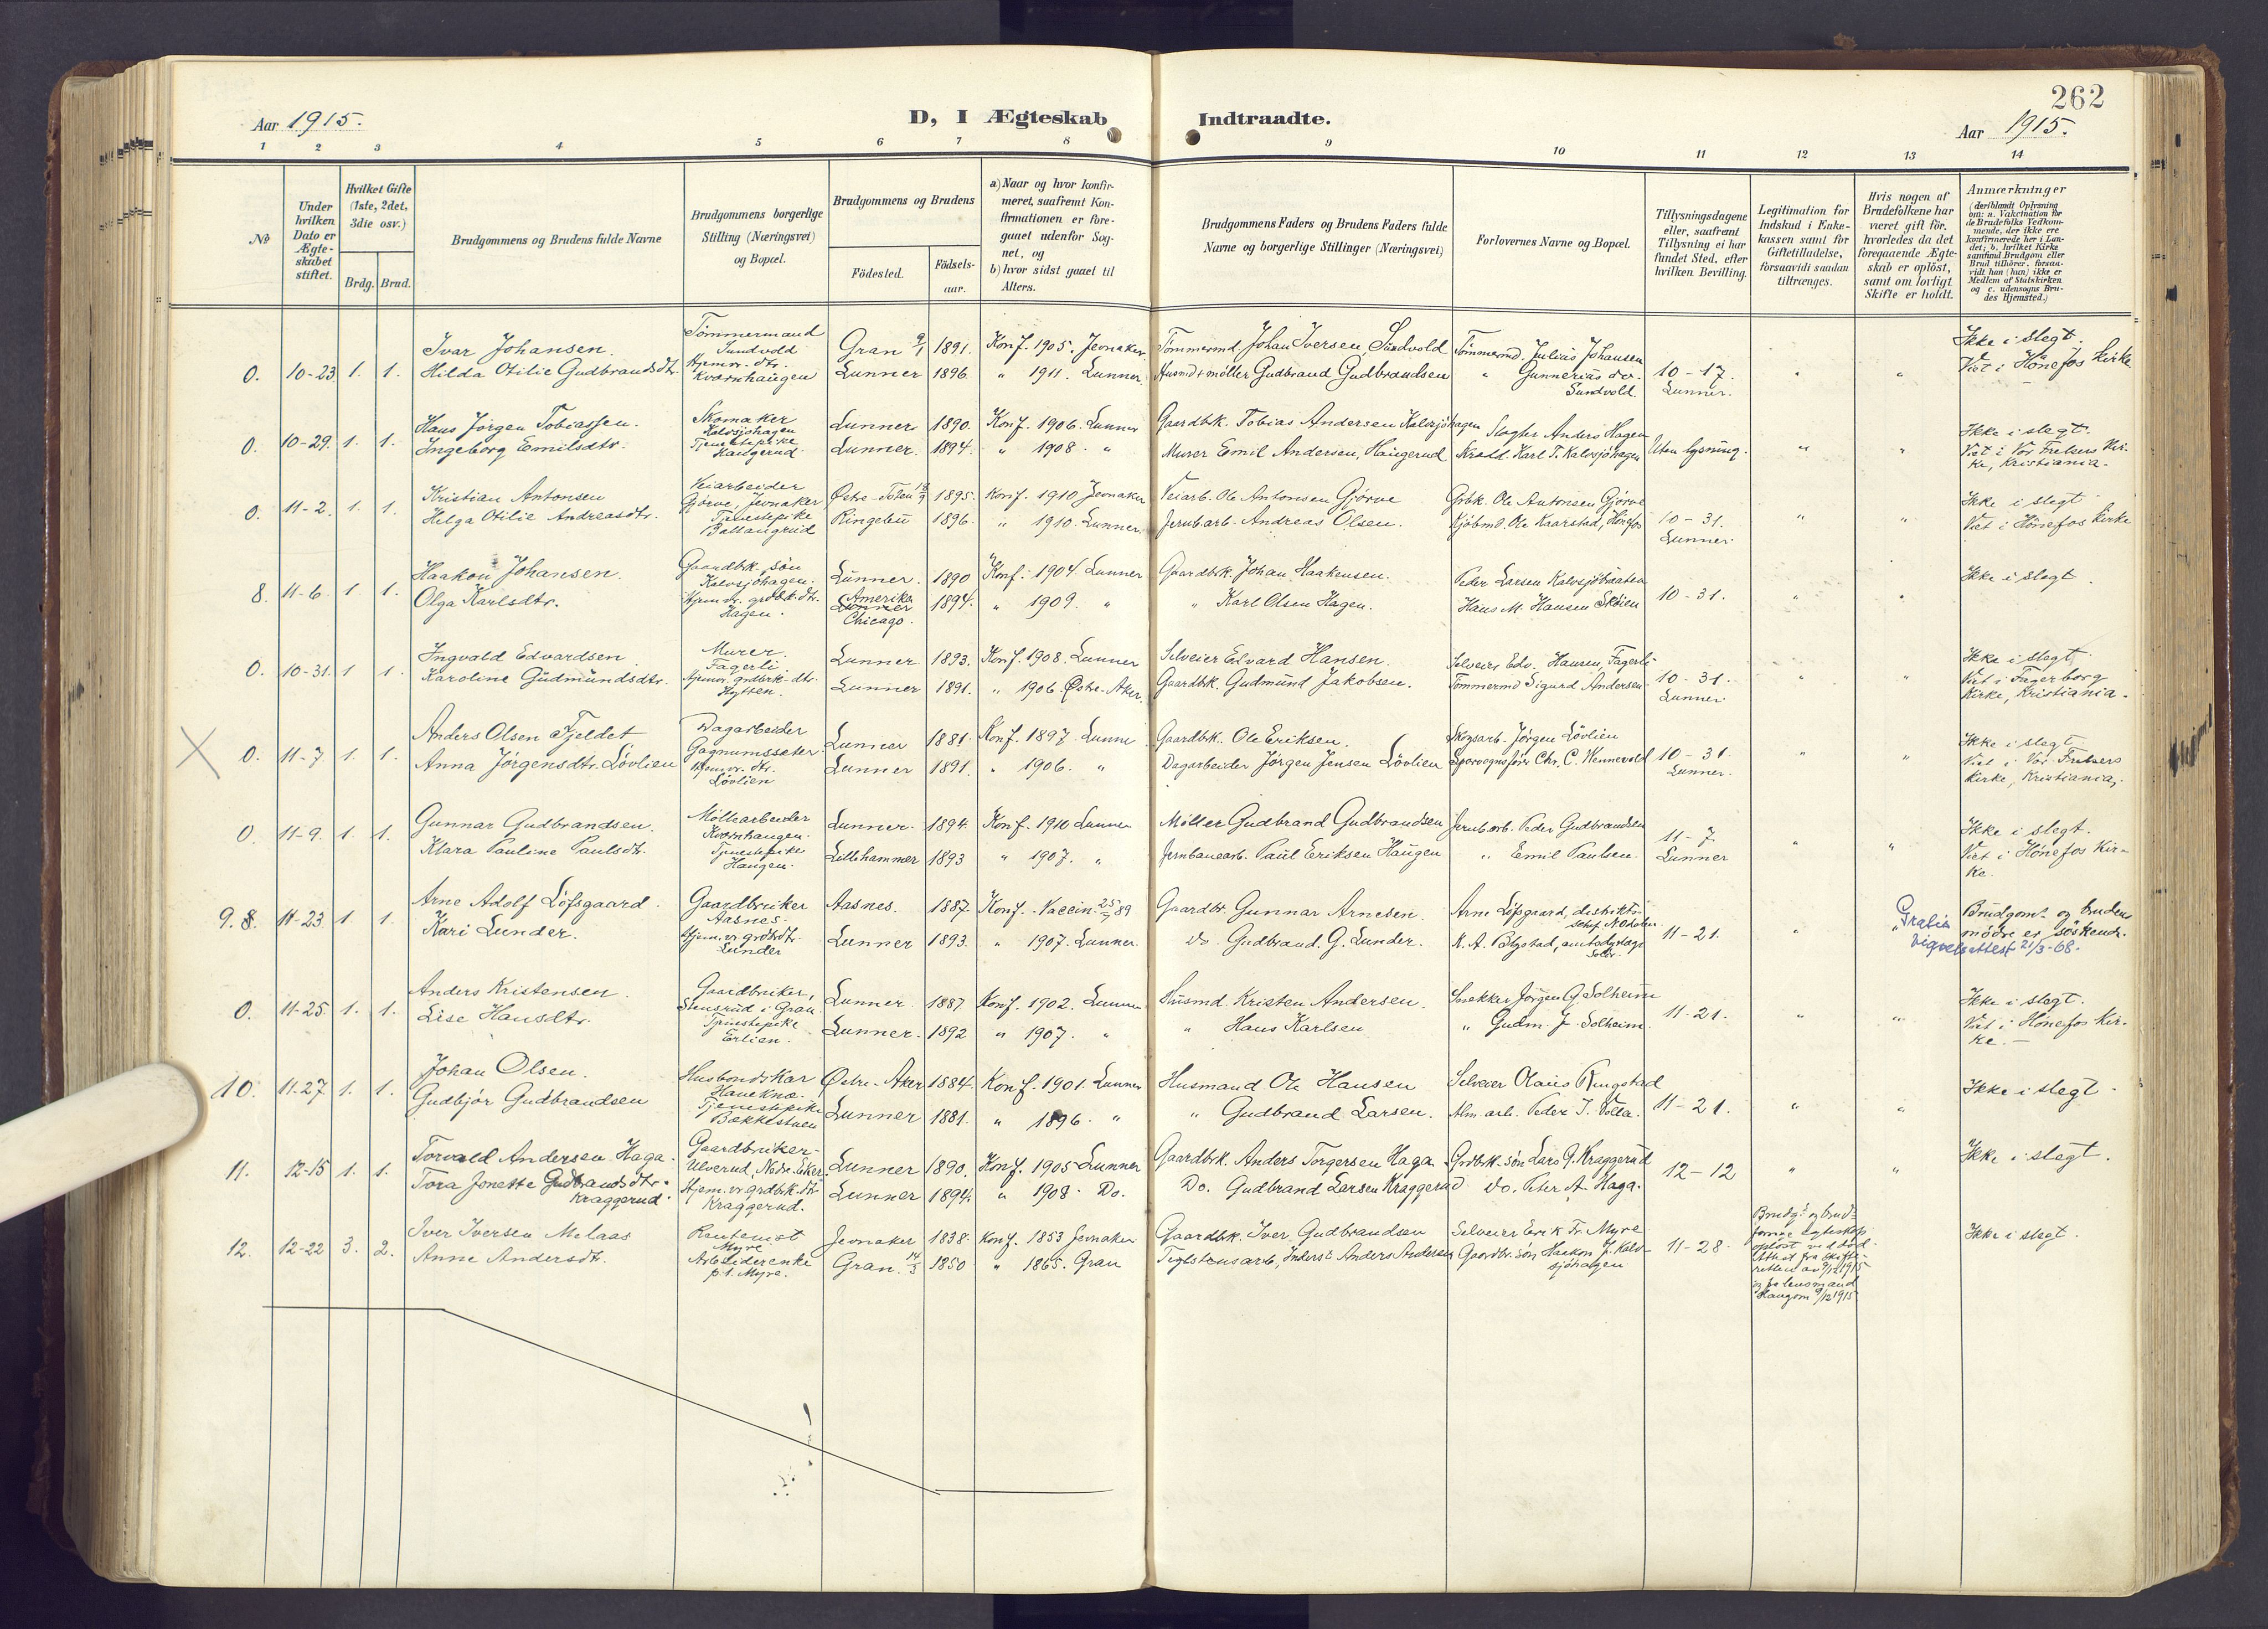 262
Aar 1915.
D, I Ægteskab Indtraadte.
Aar 1915.
1 2 3 4 5 6 7 8 9 10 11 12 13 14
No
Under hvilken Dato er Ægteskabet stiftet.
Hvilket Gifte (1ste, 2det, 3die osv.)
Brdg. Brud.
Brudgommens og Brudens fulde Navne
Brudgommens borgerlige Stilling (Næringsvei) og Bopæl.
Brudgommens og Brudens
Fødested.
Fødselsaar.
a) Naar og hvor konfirmeret, saafremt Konfirmationen er foregaaet udenfor Sognet, og
b) hvor sidst gaaet til Alters.
Brudgommens Faders og Brudens Faders fulde Navne og borgerlige Stillinger (Næringsvei)
Forlovernes Navne og Bopæl.
Tillysningsdagene eller, saafremt Tillysning ei har fundet Sted, efter hvilken Bevilling.
Legitimation for Indskud i Enkekassen samt for Giftetilladelse, forsaavidt saadan tiltrænges.
Hvis nogen af Brudefolkene har været gift før, hvorledes da det foregaaende Ægteskab er opløst, samt om lovligt Skifte er holdt.
Anmærkninger (deriblandt Oplysning om: a. Vakcination for de Brudefolks Vedkommende, der ikke ere konfirmerede her i Landet; b. hvilket Kirkesamfund Brudgom eller Brud tilhører, forsaavidt han (hun) ikke er Medlem af Statskirken og c. udensogns Brudes Hjemsted.)
0. 10-23 1. 1. Ivar Johansen. Tømmermand Sundvold Gran 9/1 1891. Konf. 1905. Jevnaker. Tømmermd Johan Iversen, Sundvold Tømmermd. Julius Johansen Ikke i slegt.
Hilda Otilie Gudbrandsdtr. Hjemv. dtr. Kværnhaugen Lunner 1896. " 1911. Lunner Husmd + møller Gudbrand Gudbrandsen " Gunnerius do. Sundvold. 10-17. Lunner. " " Viet i Hønefos Kirke
0. 10-29. 1. 1. Hans Jørgen Tobiassen. Skomaker Kalvsjøhagen Lunner 1890. Konf. 1906. Lunner Gaardbk. Tobias Andersen Kalvsjøhagen Slagter Anders Hagen Ikke i slegt.
Ingeborg Emilsdtr. Tjenestepike Haugerud. Lunner. 1894. " 1908. " Murer Emil Andersen, Haugerud Karl T. Kalvsjøhagen Uten lysning. " Viet i Vor Frelsers Kirke, Kristiania.
0. 11-2. 1. 1. Kristian Antonsen Veiarbeider Gjørve, Jevnaker Østre-Toten 1895. Konf. 1910 Jevnaker Veiarb. Ole Antonsen Gjørve Grbk. Ole Antonsen Gjørve Ikke i slegt
Helga Otilie Andreasdtr. Tjenestepike Ballangrud Ringebu 1896. " 1910. Lunner. Jernbarb. Andreas Olsen. Kjøbmd. Ole Kaarstad, Hønefos 10-31. Lunner. " " Viet i Hønefos Kirke
8. 11-6. 1 1. Haakon Johansen. Gaardbk. søn Kalvsjøhagen. Lunner. 1890 Konf. 1904. Lunner Gaardbk. Johan Haakensen. Peder Larsen Kalvsjøbraaten Ikke i slegt.
Olga Karlsdtr. Hjemv. grdbk. dtr. Hagen. Amerika Lunner Chicago. 1894. " 1909. " " Karl Olsen Hagen. Hans M. Hansen Skøien 10-31. " "
0. 10-31. 1 1. Ingvald Edvardsen Murer. Fagerli. Lunner 1893. Konf. 1908. Lunner Selveier Edvard Hansen. Selveier Edv. Hansen, Fagerli Ikke i slegt,
Karoline Gudmundsdtr. Hjemv. grdbrk-dtr. Hytten. Lunner 1891. " 1906. Østre-Aker. Gaardbk. Gudmund Jakobsen. Tømmermd Sigurd Andersen. 10-31. Lunner. " " Viet i Fagerborg Kirke, Kristiania.
X 0. 11-7. 1. 1. Anders Olsen Fjeldet Dagarbeider Gagnumsseter Lunner 1881. Konf. 1897. Lunner Gaardbk. Ole Eriksen. Skogsarb. Jørgen Løvlien Ikke i slegt
Anna Jørgensdtr. Løvlien Hjemv. dtr. Løvlien Lunner 1891. " 1906. " Dagarbeider Jørgen Jensen Løvlien Sporvognsfører Chr. C. Wennevold 10-31. Lunner. " " Viet i Vor Frelsers Kirke, Kristiania,
0. 11-9. 1. 1. Gunnar Gudbrandsen. Møllearbeider Kværnhaugen. Lunner. 1894. Konf. 1910 Lunner Møller Gudbrand Gudbrandsen Jernbarb. Peder Gudbrandsen Ikke i slegt.
Klara Pauline Paulsdtr. Tjenestepike Haugen. Lillehammer 1893 " 1907. " Jernbanearb. Paul Eriksen Haugen " Emil Paulsen. 11-7. Lunner " " Viet i Hønefos Kirke.
9. 8. 11-23. 1. 1. Arne Adolf Løfsgaard. Gaardbruker Aasnes. Aasnes. 1887. Konf. Vaccin. 25/9 89 Gaardbr. Gunnar Arnesen. Arne Løfsgaard, Brudgoms og brudens mødre er søskende.
Kari Lunder. Hjemv. grdbrdtr. Lunder Lunner 1893. " 1907. Lunner. do. Gudbrand G. Lunder. 11-21. " " Gratis vigselsattest 21/3-68.
0. 11-25. 1. 1. Anders Kristensen. Gaardbruker, Stensrud i Gran. Lunner. 1887. Konf. 1902. Lunner Husmd. Kristen Andersen. Snekker Jørgen G. Solheim Ikke i slegt.
Lise Hansdtr. Tjenestepike Erlien. Lunner. 1892 " 1907. " " Hans Karlsen " Gudm. J. Solheim. 11-21. " " Viet i Hønefos Kirke.
10. 11-27. 1. 1. Johan Olsen. Husbondskar Haneknæ. Østre-Aker 1884. Konf. 1901. Lunner Husmand Ole Hansen Selveier Olaus Ringstad Ikke i slegt.
Gudbjør Gudbrandsen Tjenestepike Bækkestuen Lunner 1881. " 1896. " " Gudbrand Larsen. Alm. arb. Peder J. Volla. 11-21. " "
11. 12-15 1. 1. Torvald Andersen Haga. Gaardbruker- Ulverud, Nedre-Eker Lunner 1890. Konf. 1905 Lunner Gaardbk. Anders Torgersen Haga Grdbrk-søn Lars G. Kraggerud Ikke i slegt.
Tora Jonette Gudbrandsdtr. Kraggerud. Hjem. v. grdbk. dtr. Kraggerud. Lunner 1894. " 1908. Do. Do. Gudbrand Larsen Kraggerud do. Peter A. Haga. 12-12 " "
12. 12-22 3. 2. Iver Iversen Melaas Rentenist Myre Jevnaker 1838. Konf. 1853 Jevnaker Gaardbk. Iver Gudbrandsen Selveier Erik Fr. Myre Ikke i slegt.
Anne Andersdtr. Arbeiderenke p.t. Myre. Gran. 14/3 1850 " 1865. Gran Teglstensarb., Inderst Anders Andersen Gaardbr. søn Haakon J. Kalvsjøhagen 11-28.
Brudg.s og bruds forrige egteskap opløst ved død. Attest fra skifteretten av 9/12 1915 og fra lensmand Haugom 9/12 1915